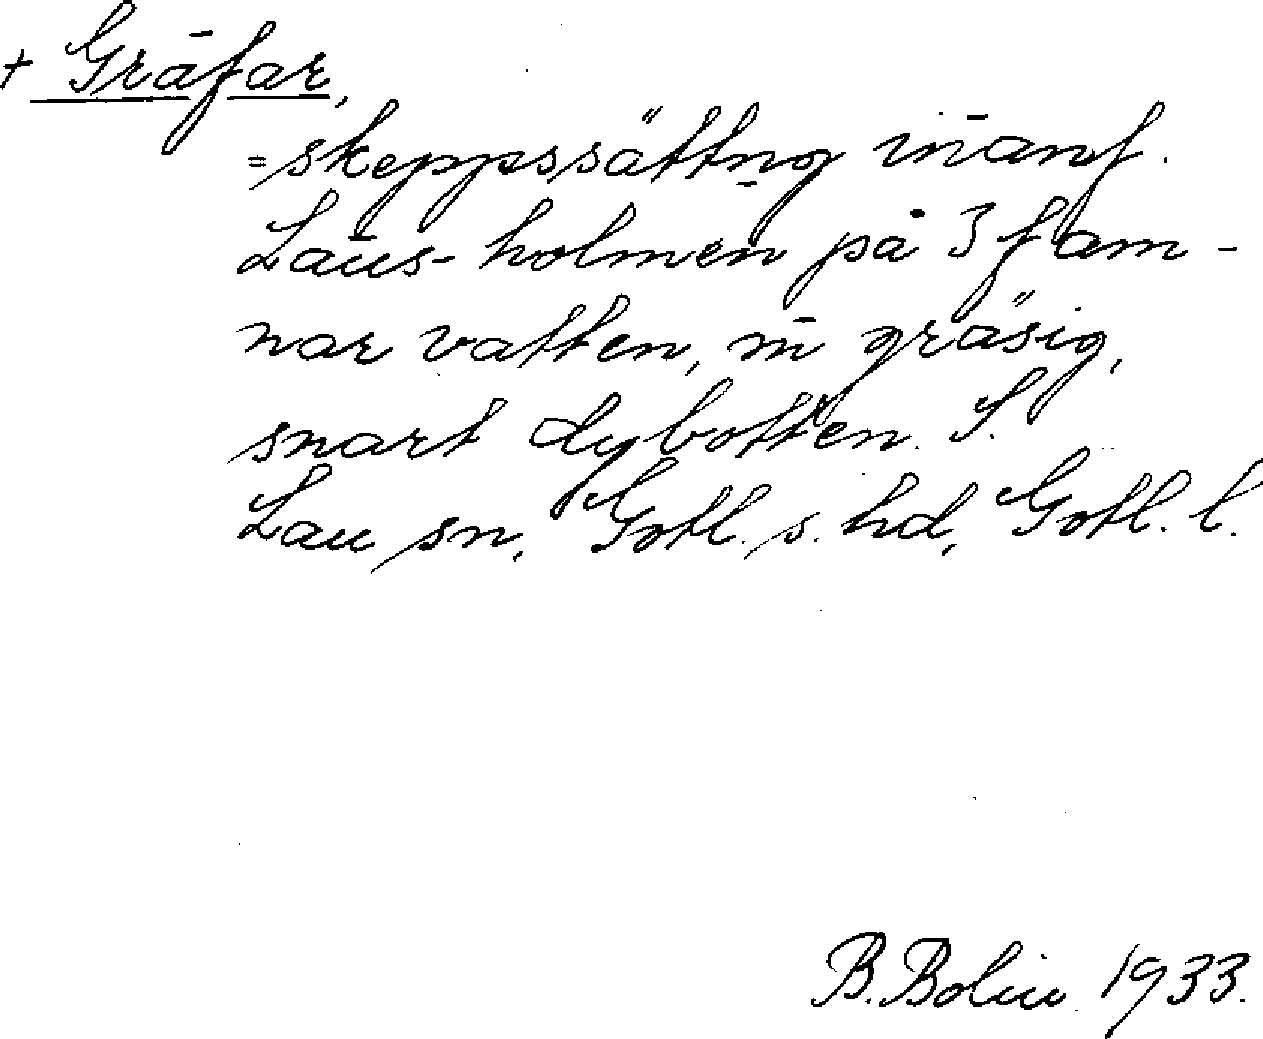 + Gräfar,
=skeppssättng inanf.
Laus-holmen på 3 fam-
nar vatten, m gräsig,
snart dybotten. S.
Lau sn, Gotl. s. hd, Gotl. l.
B. Bolin 1933.